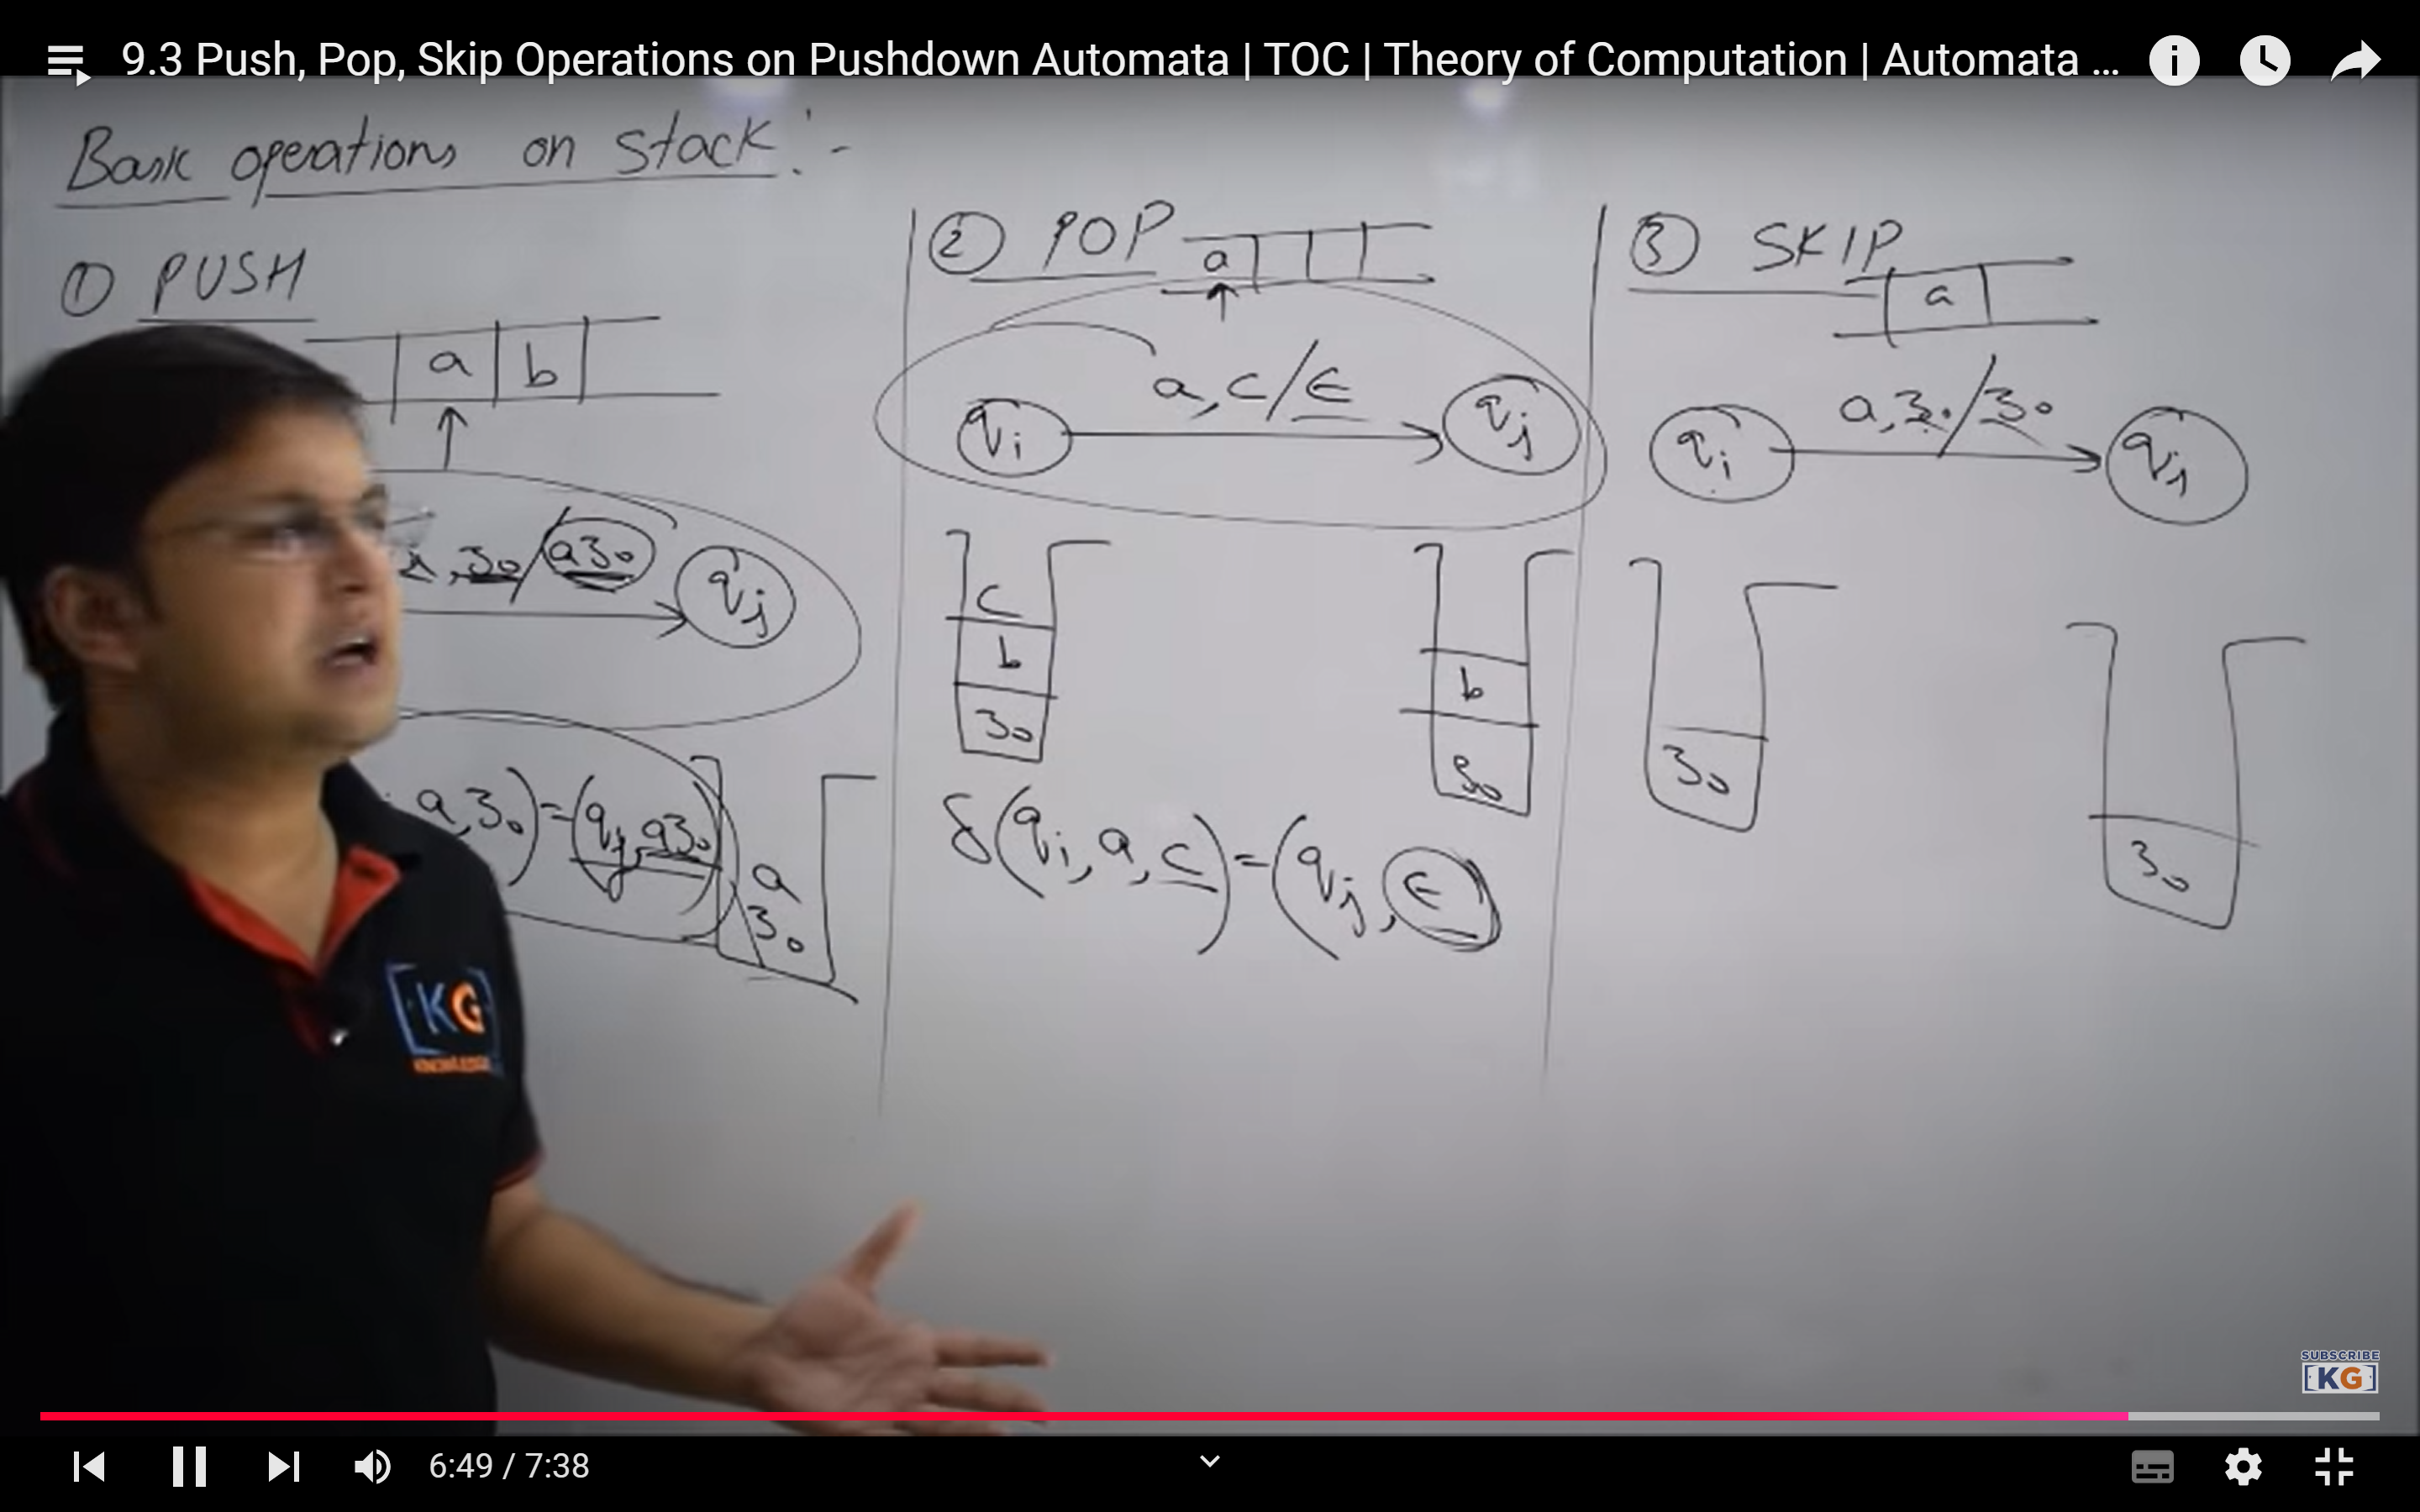 9.3 Push, Pop, Skip Operations on Pushdown Automata | TOC | Theory of Computation | Automata ...
Basic operations on stack:-
① PUSH
a b
z₀/az₀
qj
a,z₀)=(qj,az₀)
a
z₀
② POP
a
a,c/ϵ
qi
qj
c
b
z₀
b
z₀
δ(qi,a,c)=(qj,ϵ)
③ SKIP
a
a,z₀/z₀
qi
qj
z₀
z₀
[KG]
KNOWLEDGE
SUBSCRIBE
[KG]
6:49 / 7:38